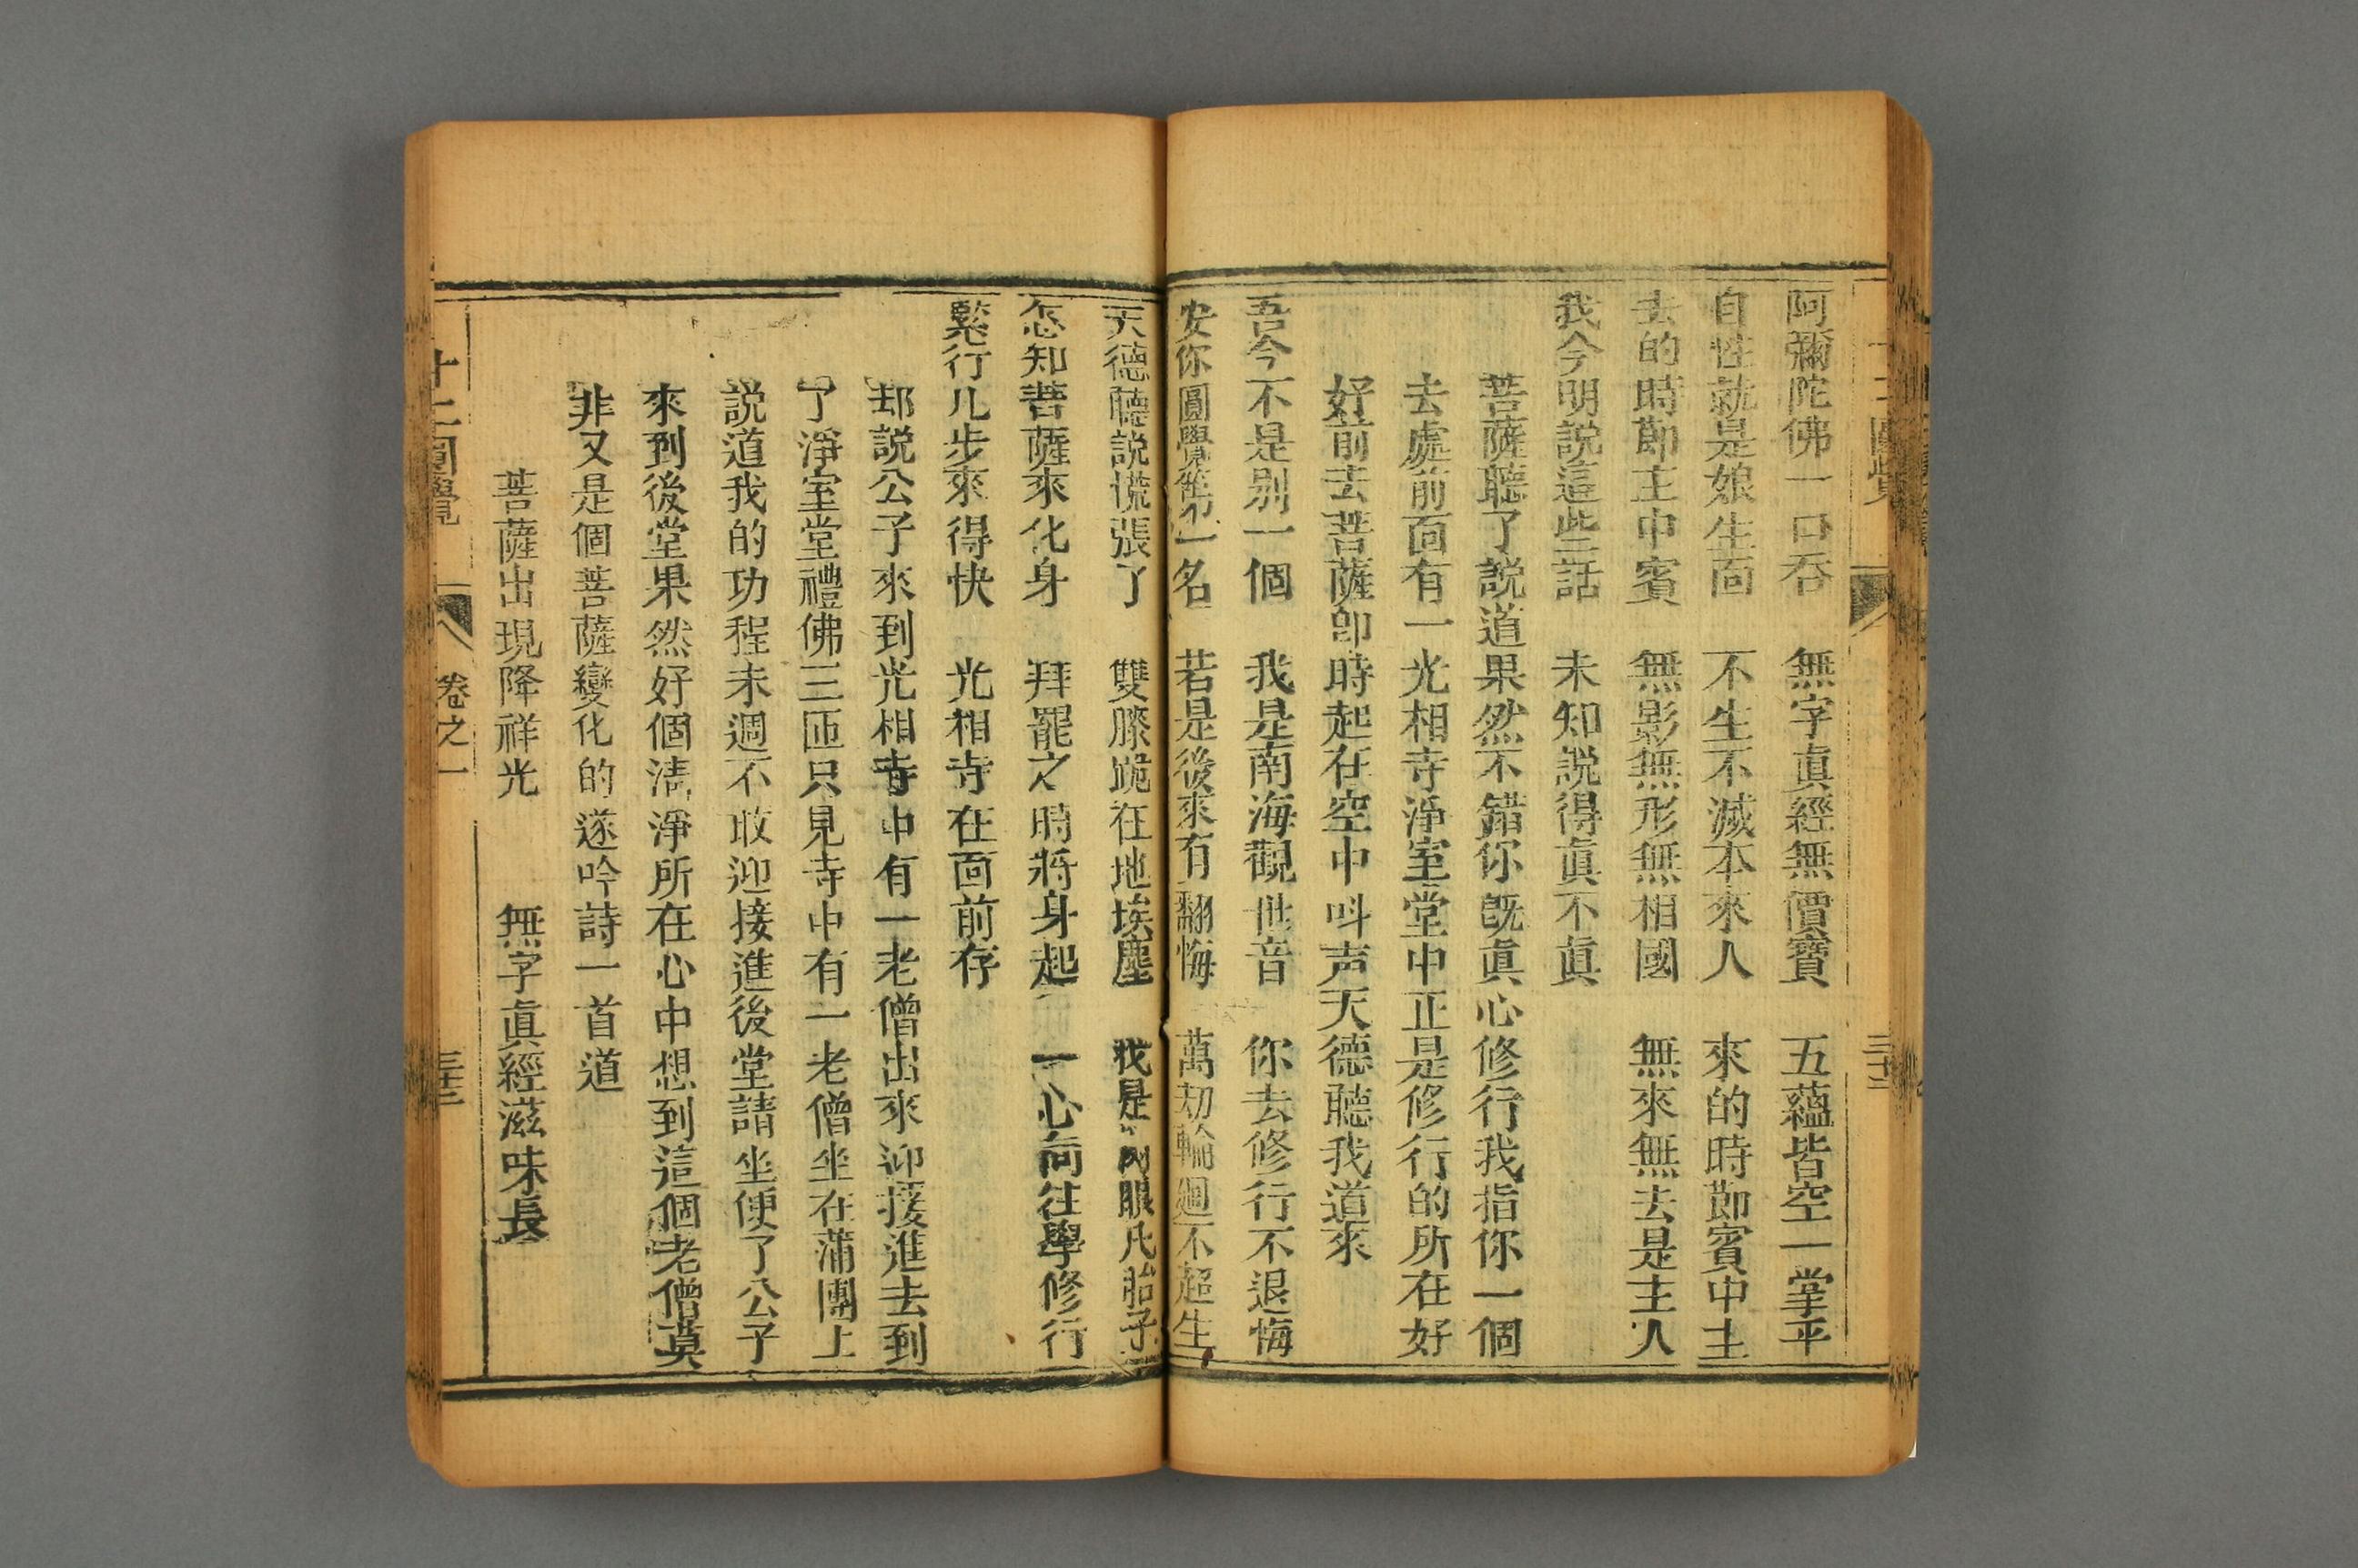 十二圓覺
三十二
阿彌陀佛一口吞　無字眞經無價寶　五蘊皆空一掌平
自性就是娘生面　不生不滅本來人　來的時節賓中主
去的時節主中賓　無影無形無相國　無來無去是主人
我今明說這些話　未知説得眞不眞
菩薩聽了説道果然不錯你旣眞心修行我指你一個
去處前面有一光相寺淨室堂中正是修行的所在好
好前去菩薩卽時起在空中呌声天德聽我道來
吾今不是别一個　我是南海觀世音　你去修行不退悔
安你圓覺一名　若是後來有翻悔　萬刼輪廻不超生
天德聽説慌張了　雙膝跪在地埃塵　我是肉眼凡胎子
怎知菩薩來化身　拜罷之時將身起　一心向往學修行
緊行几步來得快　光相寺在面前存
却説公子來到光相寺中有一老僧出來迎接進去到
了淨室堂堂禮佛三匝只見寺中有一老僧坐在蒲團上
説道我的功程未週不敢迎接進後堂請坐便了公子
來到後堂果然好個清淨所在心中想到這個老僧莫
非又是個菩薩變化的遂吟詩一首道
菩薩出現降祥光　無字眞經滋味長
十二圓覺
卷之一
三十二